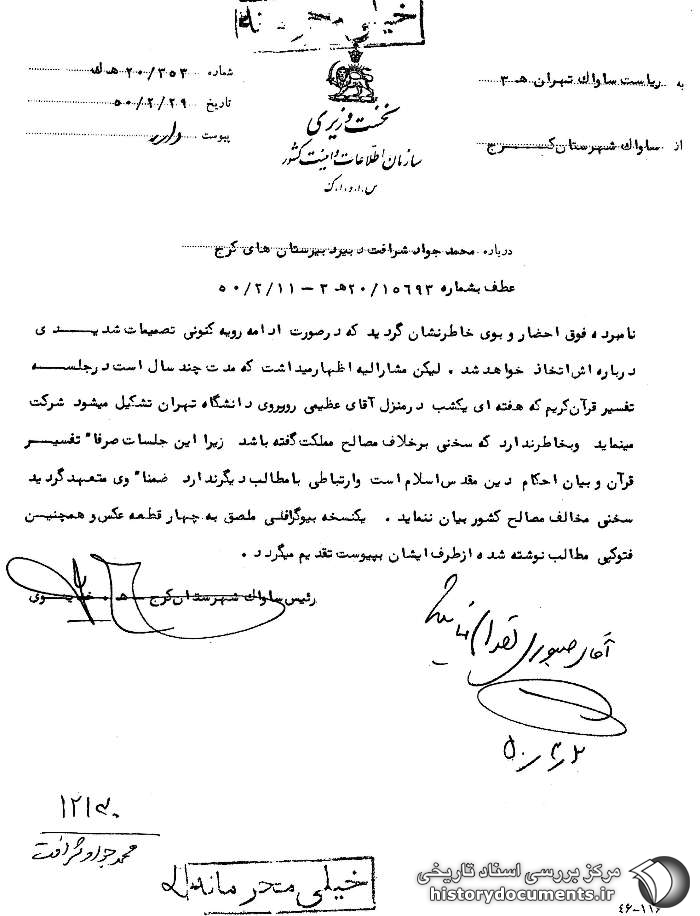 خیلی محرمانه
به ریاست ساواک تهران ه‍ ۳
از ساواک شهرستان کرج
نخست وزیری
سازمان اطلاعات و امنیت کشور
س.ا.و.ا.ک
شماره ۲۰/۳۵۳ ه‍ ک
تاریخ ۵۰/۲/۲۹
پیوست دارد
درباره محمد جواد شرافت دبیر دبیرستان های کرج
عطف بشماره ۲۰/۱۵۶۹۳ه‍ ۳ – ۵۰/۲/۱۱
نامبرده فوق احضار و بوی خاطرنشان گردید که درصورت ادامه رویه کنونی تصمیمات شدیدی
درباره اش اتخاذ خواهد شد . لیکن مشارالیه اظهارمیداشت که مدت چند سال است درجلسه
تفسیر قرآن کریم که هفته ای یکشب درمنزل آقای عظیمی روبروی دانشگاه تهران تشکیل میشود شرکت
مینماید وبخاطرندارد که سخنی برخلاف مصالح مملکت گفته باشد زیرا این جلسات صرفا" تفسیر
قرآن و بیان احکام دین مقدس اسلام است وارتباطی بامطالب دیگرندارد ضمنا" وی متعهد گردید
سخنی مخالف مصالح کشور بیان ننماید . یکنسخه بیوگرافی ملصق به چهار قطعه عکس و همچنین
فتوکپی مطالب نوشته شده ازطرف ایشان بپیوست تقدیم میگردد .
رئیس ساواک شهرستان کرج
آقای صبوری
۵۰/۳/۲
محمد جواد شرافت
خیلی محرمانه
مرکز بررسی اسناد تاریخی
historydocuments.ir